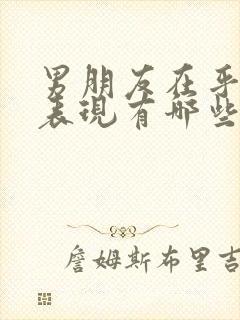 男朋友在乎
表现有哪些
詹姆斯布里吉